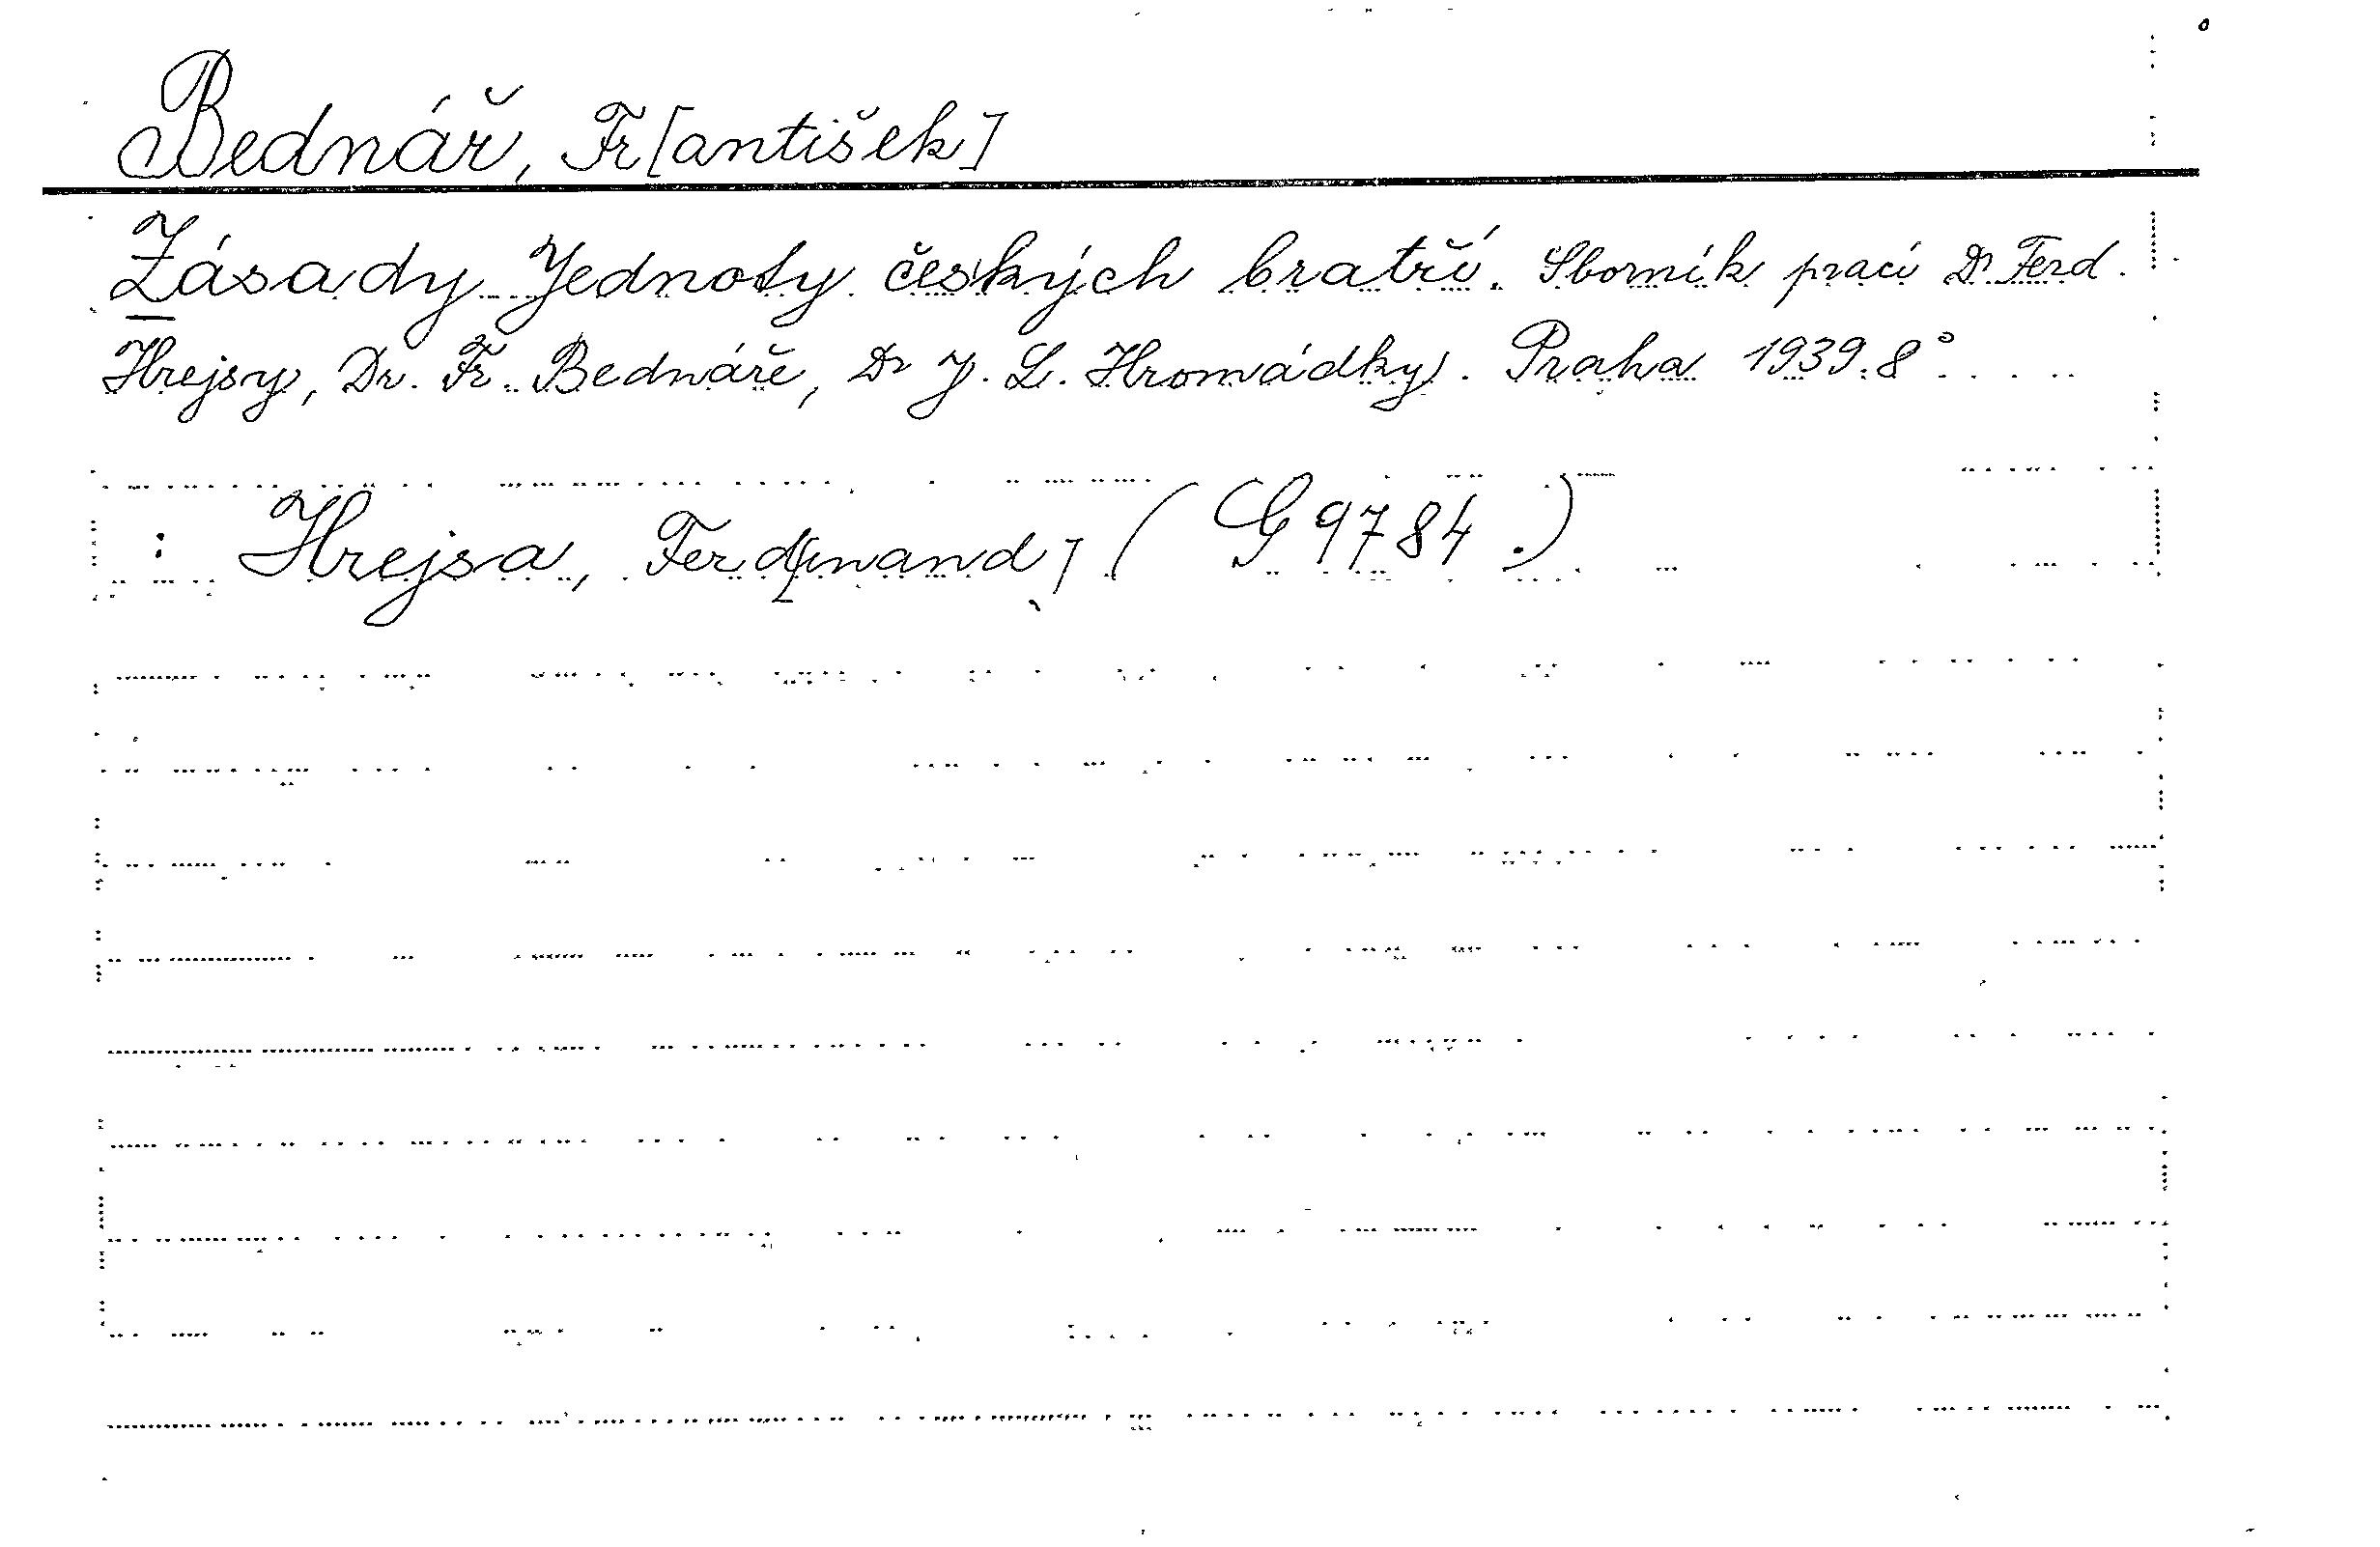 Bednář, Fr[antišek]
Zásady Jednoty českých bratří. Sborník prací Dr Ferd.
Hrejsy, Dr. Fr. Bednáře, Dr J. L. Hromádky. Praha 1939. 8°
: Hrejsa, Ferd[inand] ( G 9784.)